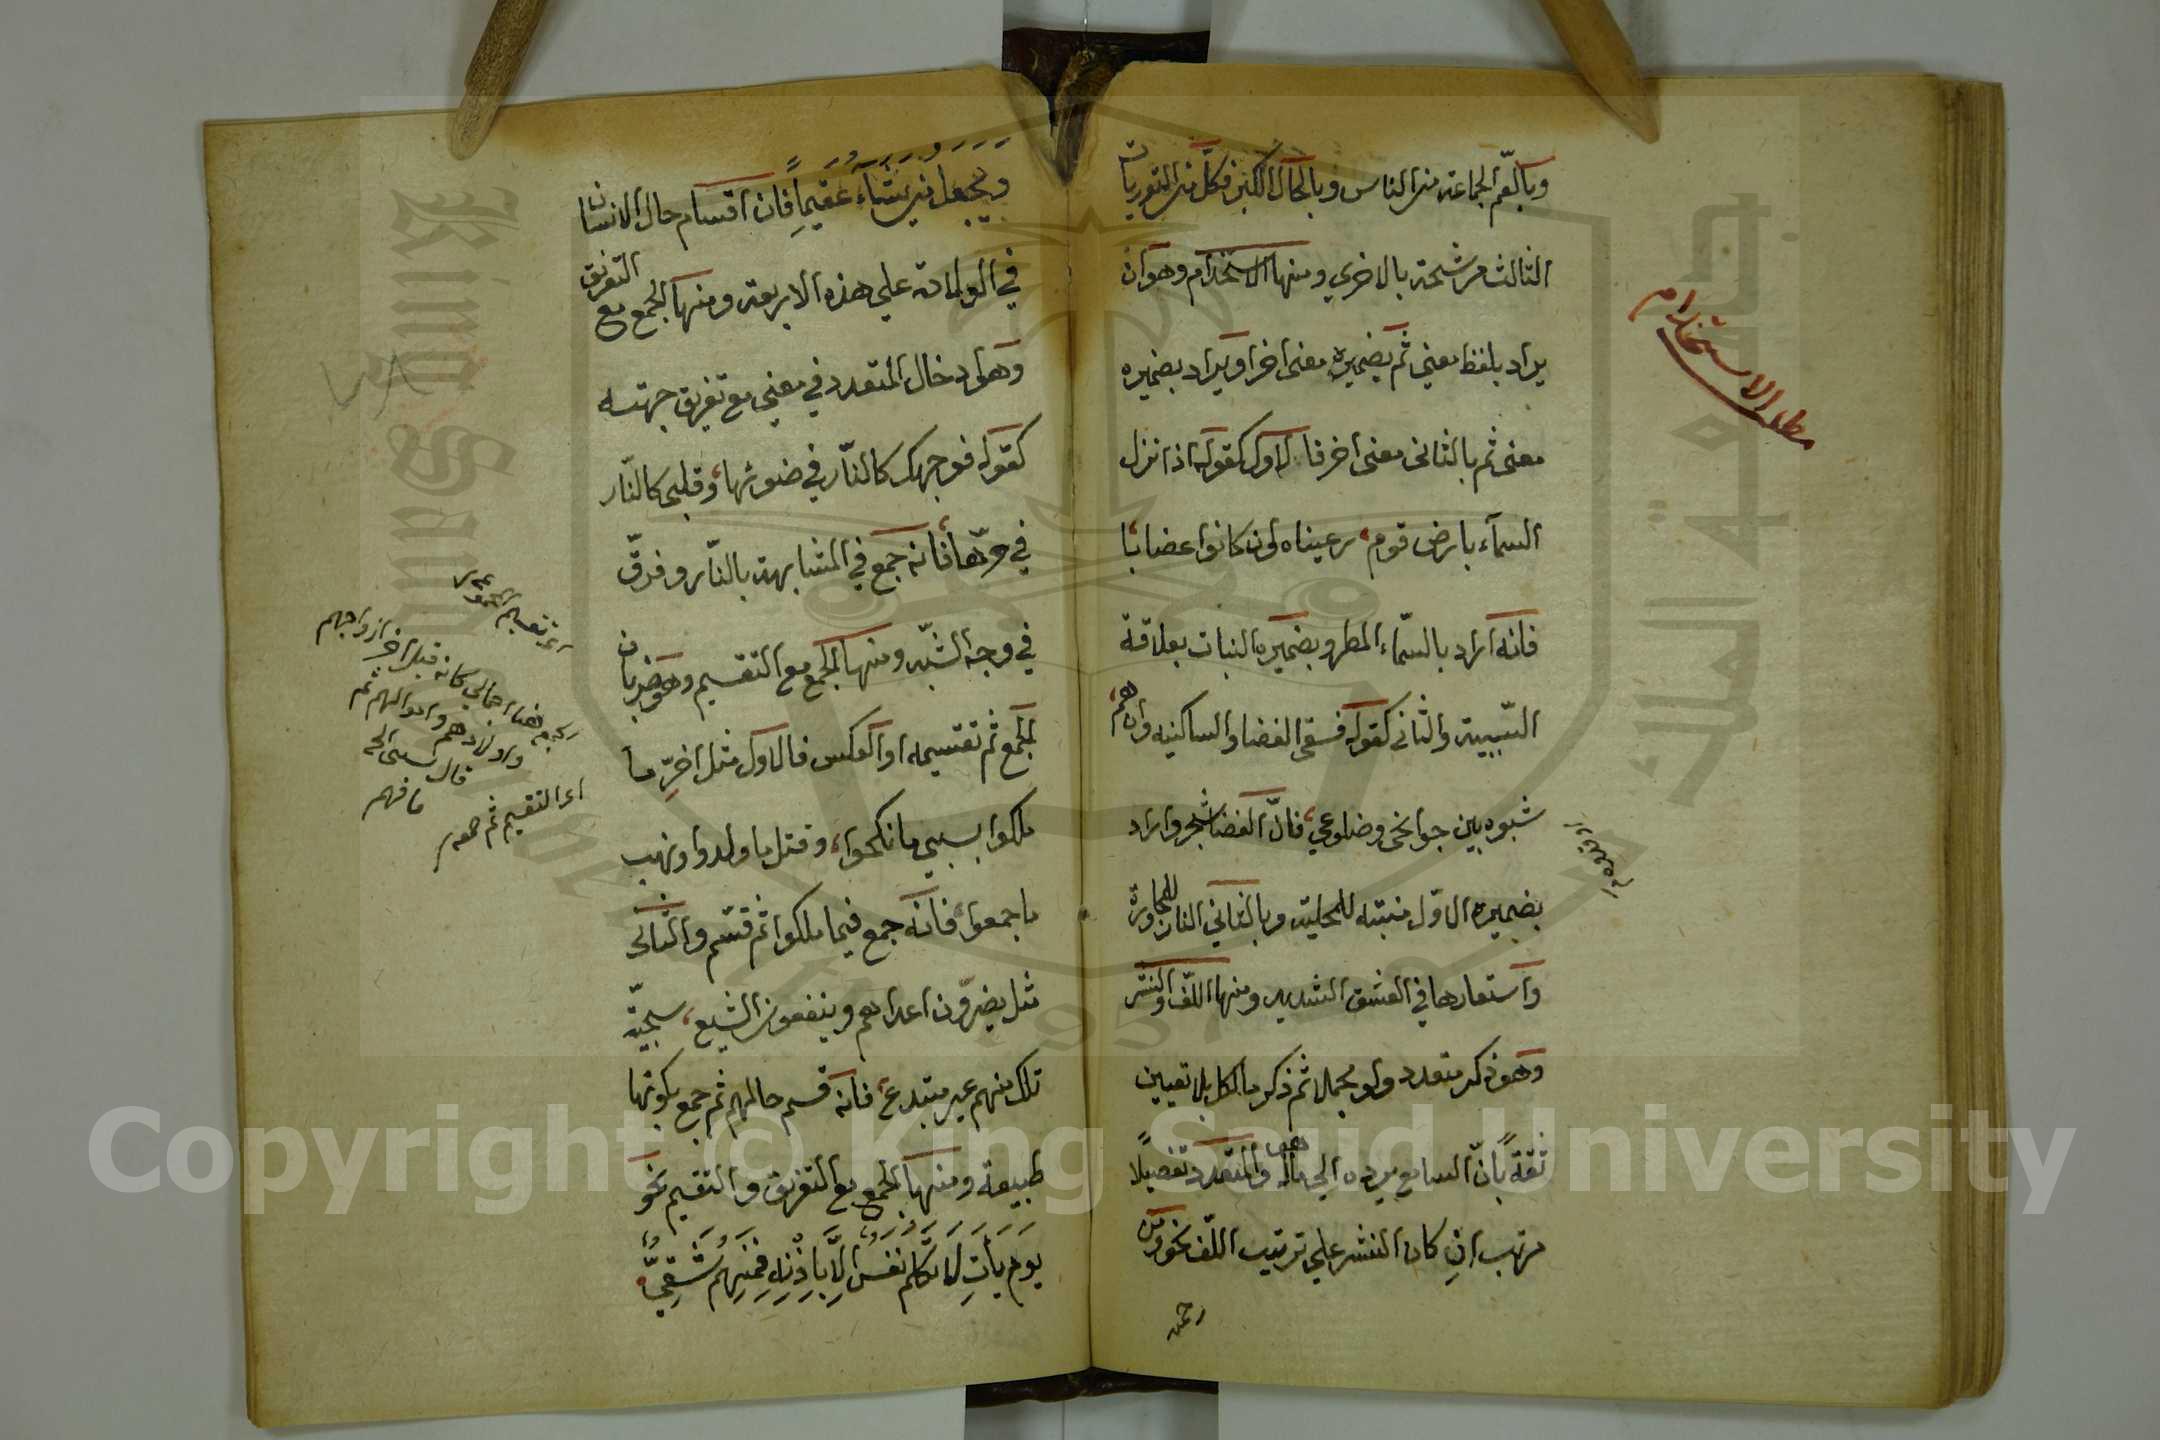 وبالعم الجماعة من الناس وبالخال الكبر فكل من التوريات
الثالث مرشحة بالاخري ومنها الاستخدام وهو ان
يراد بلفظ معني ثم بضميره معنى اخر او يراد بضميره
معنى ثم بالثانى معنى اخر فالاول كقوله اذا نزل
السمآء بارض قوم رعيناه وان كانوا عضابا
فانه اراد بالسمآء المطر وبضميره النبات بعلاقة
السببية والثانى كقوله فسقى الغضا والساكنيه وان هم
شبوه بين جوانحى وضلوعي فان الغضا شجر واراد
بضميره الاول منبته للمحلية وبالثاني النار للمجاورة
واستعارها في العشق الشديد ومنها اللف والنشر
وهو ذكر متعدد ولو مجملا ثم ذكر ما لكل بلا تعيين
ثقةً بانّ السامع يرده الي ماله والمتعدد تفصيلًا
مرتب ان كان النشر على ترتيب اللف نحو ومن
رحمته
مطلب الاستخدام
ويجعل من يشآء عقيما فان اقسام حال الانسان
في الولادة علي هذه الاربعة ومنها الجمع مع التفريق
وهو ادخال المتعدد في معني مع تفريق جهته
كقوله فوجهك كالنار في ضوئها وقلبي كالنار
في حرها فانه جمع في المشابهة بالنار وفرق
في وجه الشبه ومنها الجمع مع التقسيم وهو ضربان
الجمع ثم تقسيمه او العكس فالاول مثل اخر ما
ملكوا بسبي ما نكحوا وقتل ما ولدوا ونهب
ما جمعوا فانه جمع فيما ملكوا ثم قسم والثانى
مثل يضرون اعداهم وينفعون الشيع سجية
تلك منهم غير مبتدع فانه قسم حالهم ثم جمع بكونها
طبيعة ومنها الجمع مع التفريق والتقسيم نحو
يوم يأت لا تكلم نفس الا باذنه فمنهم شقي
اى التقسيم ثم جمعه